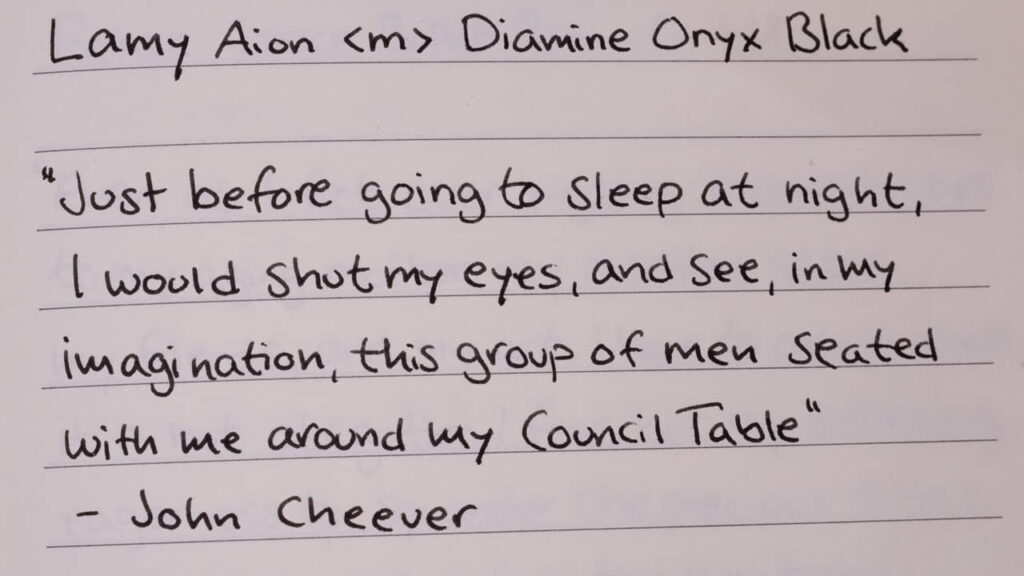 Lamy Aion <m> Diamine Onyx Black
"Just before going to sleep at night,
I would shut my eyes, and see, in my
imagination, this group of men seated
with me around my Council Table"
- John Cheever